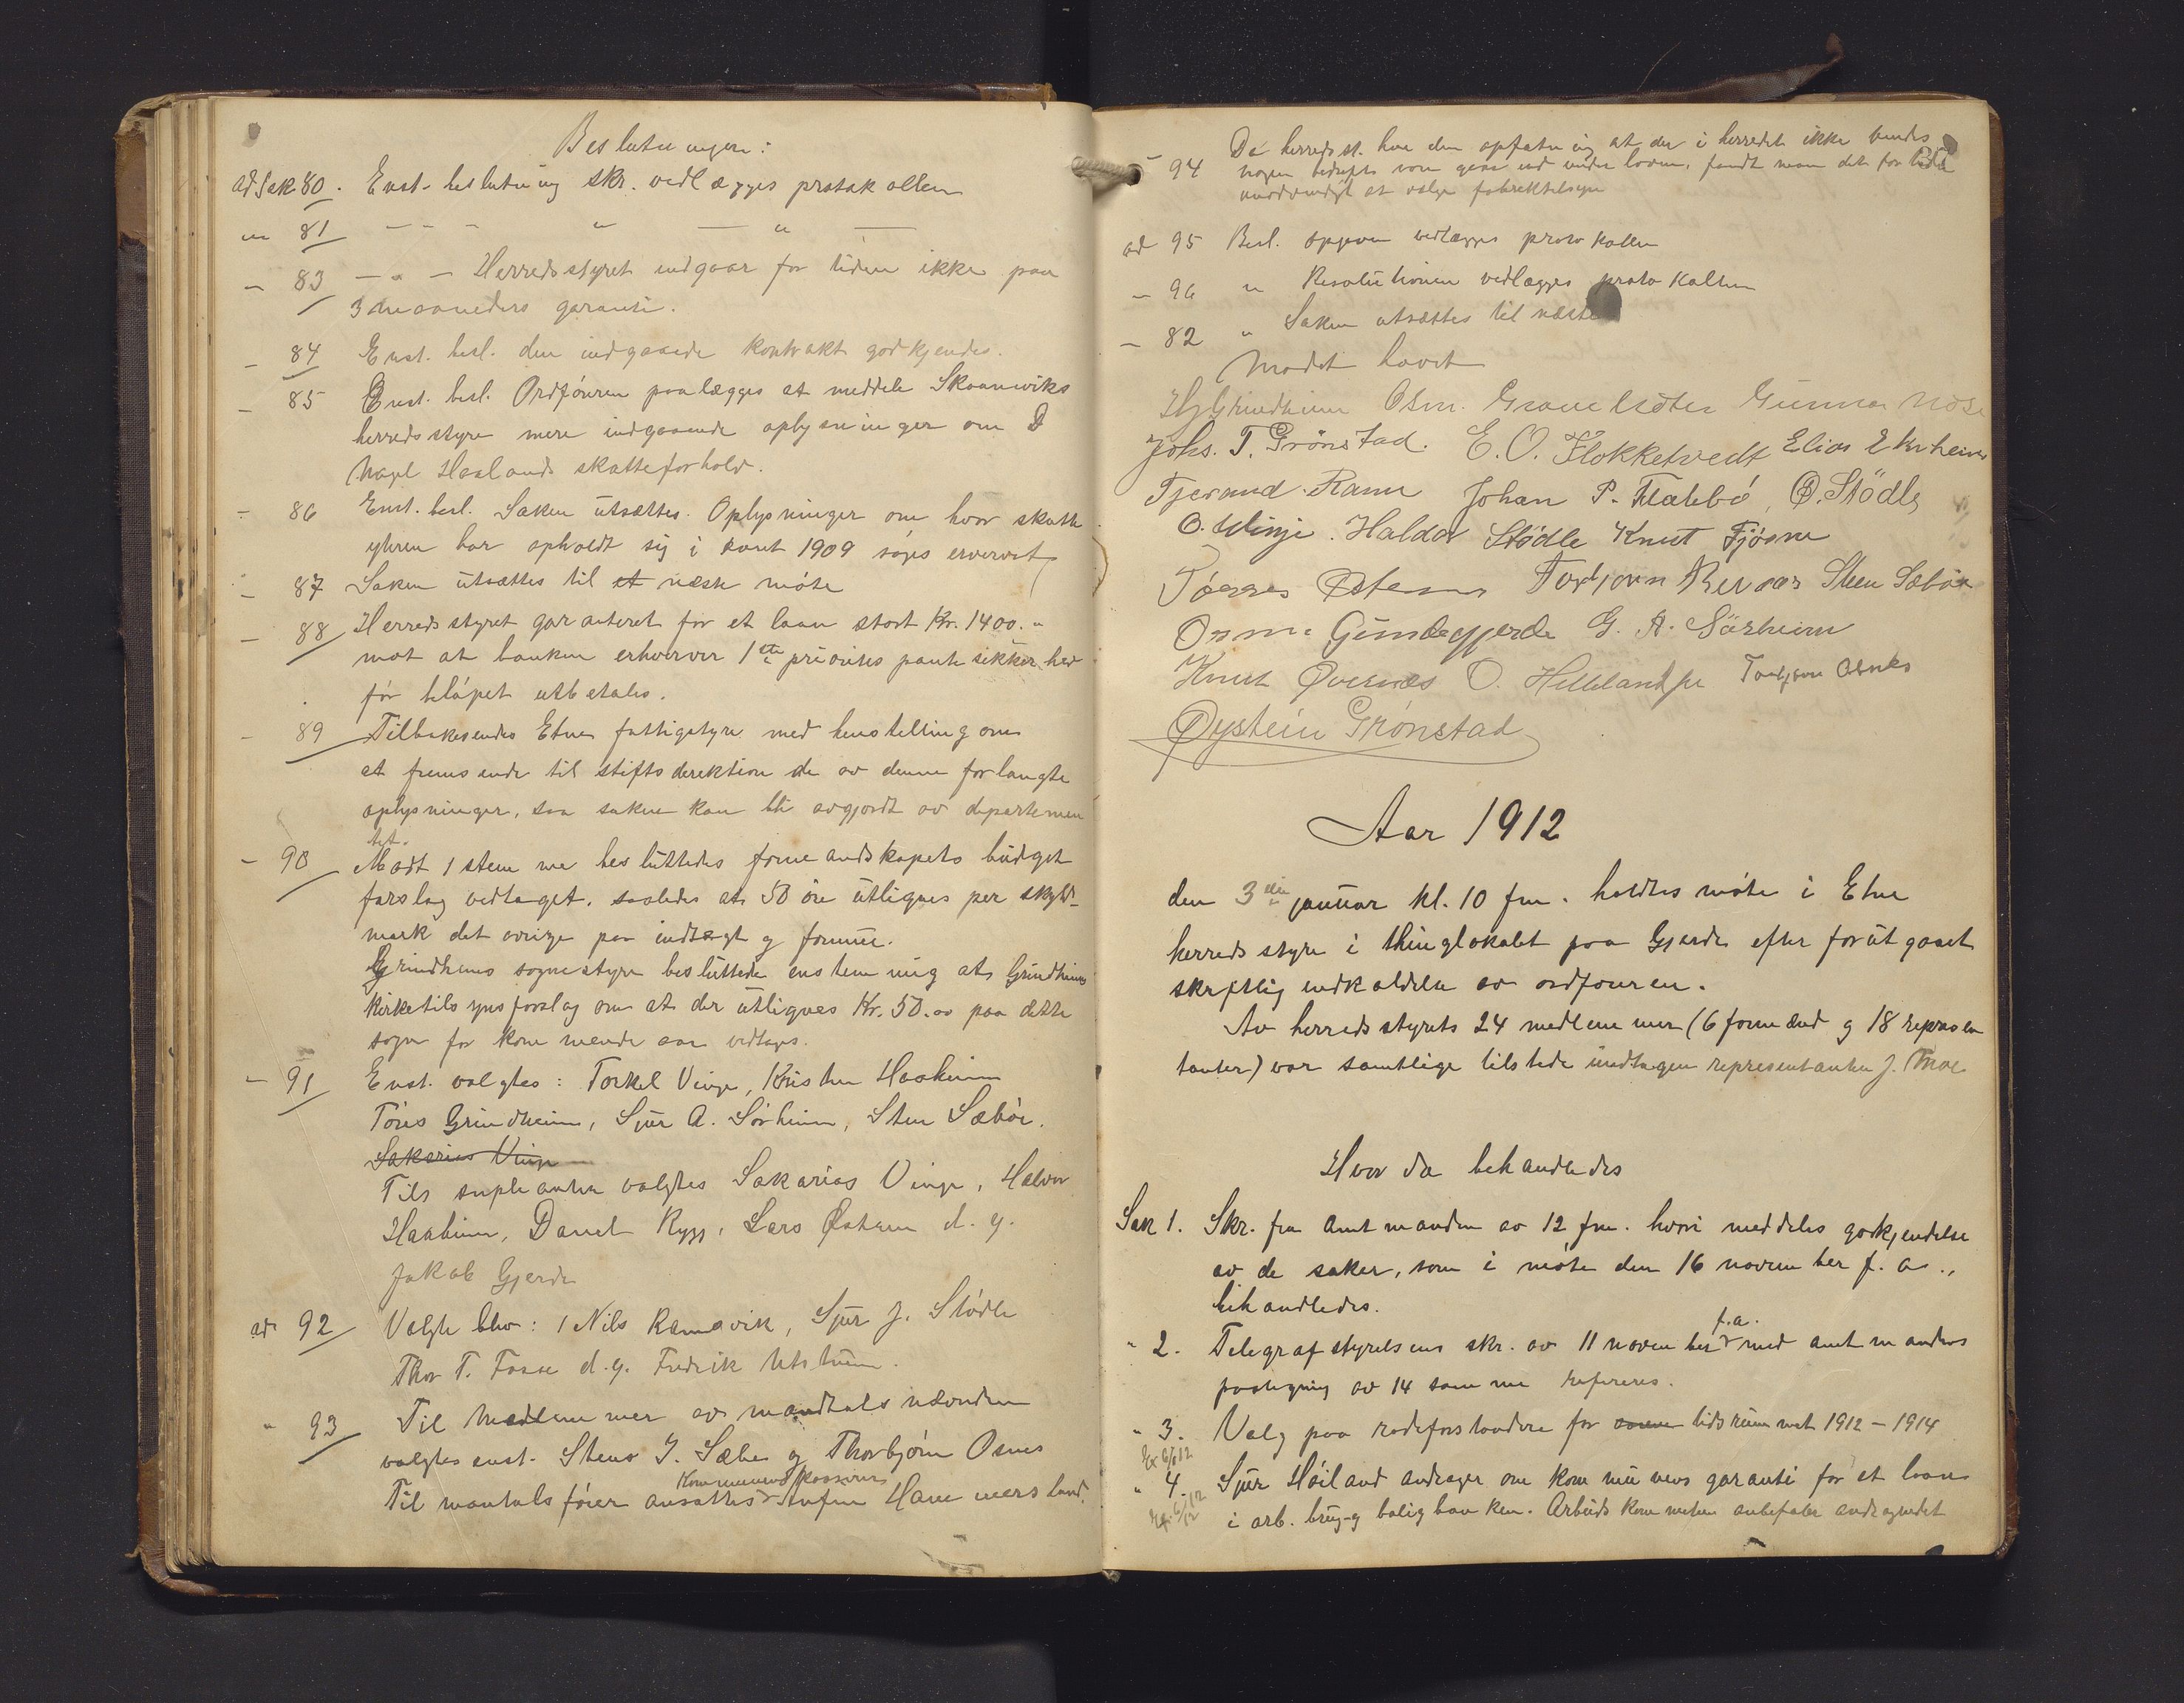 Beslutninger:
ad Sak 80. Enst. beslutning skr. vedlægges protokollen
" 81 - - - " — " —
- 83 — " — Herredsstyret indgaar for tiden ikke paa
3 maaneders garanti.
- 84 Enst. besl. den indgaaede kontrakt godkjendes.
- 85 Enst. besl. Ordføreren paalægges at meddele Skaaneviks
herredsstyre mere indgaaende oplysninger om
Haalands skatteforhold.
- 86 Enst. besl. Saken utsættes. Oplysninger om hvor skatte
yteren har opholdt sig i aaret 1909 søges erhvervet
- 87 Saken utsættes til et næste møte
- 88 Herredsstyret garanteret for et laan stort Kr. 1400.-
mot at banken erhverver 1ste prioritets pantesikkerhed
før beløpet utbetales.
- 89 Tilbakesendes Etne fattigstyre med henstilling om
at fremsende til stiftsdirektion de av denne forlangte
oplysninger, saa saken kan bli avgjordt av departemen
tet.
- 90 Modt 1 stemme besluttedes formandskapets budget
forslag vedtaget, saaledes at 50 øre utlignes per skyld-
mark det øvrige paa indtægt og formue.
Grindheims sognestyre besluttede enstemmig at Grindheims
kirketilsyns forslag om at der utlignes Kr. 50.00 paa dette
sogn for kommende aar vedtages.
- 91 Enst. valgtes: Torkel Vinje, Kristen Haaheim
Tøres Grindheim, Sjur A. Sørheim, Sten Sæbøe.
Sakarias Vinje
Til supleanter valgtes Sakarias Vinje, Halvor
Haaheim, Daniel Rygg, Lars Østrem d. y.
Jakob Gjerde
ad 92 Valgte blev: 1 Nils Ramsvik, Sjur J. Stødle
Thor T. Fosse d.y. Fredrik
" 93 Til Medlemmer av mandtalsnævnden
valgtes enst. Stens J. Sæbøe og Thorbjørn Osnes
Kommunens kasserer
Til mantalsfører ansattes Anfin Hammersland.
- 94 Da herredsst. har den opfatning at der i herredet ikke findes
nogen bedrifts som gaar ind under loven, fandt man det for tiden
unødvendigt at vælge fabriktilsyn
ad 95 Besl. opgaven vedlægges protokollen
- 96 " Resolutionen vedlægges protokollen
- 82 " Saken utsættes til næste
Mødet hævet
H. Grindheim Osm. Gravelsæter Gunnar Næs
Johs. T. Grönstad. E. O. Flokketvedt Elias Ekrheim
Tjerand Ramn Johan P. Flatebø, O. Stödle
O. Vinje. Haldor Stødle Knut Fjösne
Tørres Østrem Torbjørn Bervær Sten Sæbøe
Osm. Gundegjerde G. A. Sörheim
Knut Øvernæs O. Hilleland jr Torbjørn Osnes
Øystein Grønstad
Aar 1912
den 3die januar kl. 10 fm. holdtes møte i Etne
herredsstyre i thinglokalet paa Gjerde efter forutgaaet
skriftlig indkaldelse av ordføreren.
Av herredsstyrets 24 medlemmer (6 formænd og 18 represen
tanter) var samtlige tilstede undtagen representanten J. Moe
Hvor da behandledes
Sak 1. Skr. fra Amtmanden av 12 fm. hvori meddeles godkjendelse
av de saker, som i møte den 16 november f. a.,
behandledes.
f.a.
" 2. Telegrafstyrelsens skr. av 11 november med amtmandens
paategning av 14 samme refereres.
" 3. Valg paa rodeforstandere for tidsrummet 1912 - 1914
Ex 6/1 12
" 4. Sjur Høiland andrager om kommunens garanti for et laan
Ex. 6/1 12
i arb. brug- og boligbanken. Arbeidskomiteen anbefaler andragendet